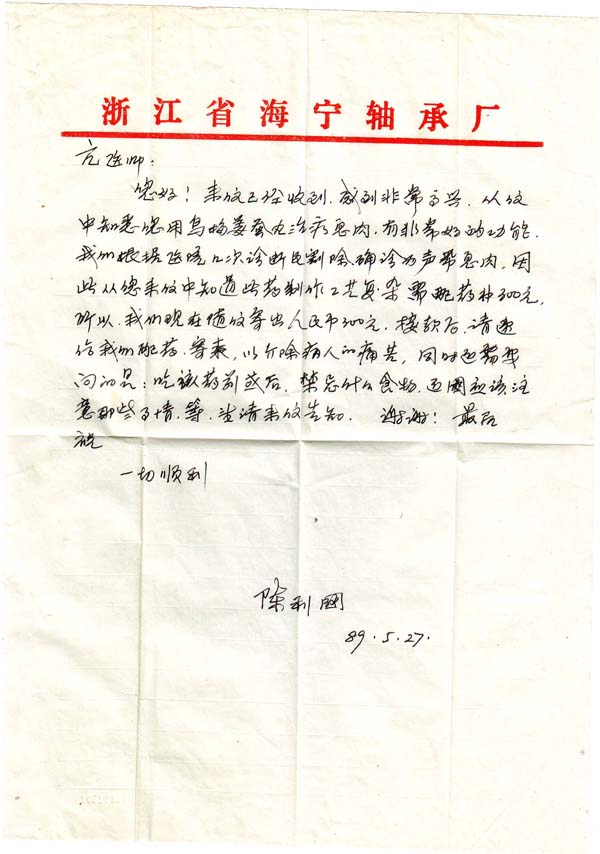 浙江省海宁轴承厂
亢医师：
您好！来信已经收到，感到非常高兴，从信
中知悉您用乌梅姜蚕丸治疗息肉，有非常好的功能，
我们根据医院几次诊断已割除确诊为声带息肉，因
此从您来信中知道此药制作工艺复杂需配药补300元，
所以，我们现在随信寄出人民币300元，接款后，请速
给我们配药，寄来，以解除病人的痛苦，同时还需要
问的是：吃该药前或后，禁忌什么食物，还应该注
意那些事情，等，望请来信告知。谢谢！最后
祝
一切顺利
陈利
89.5.27.